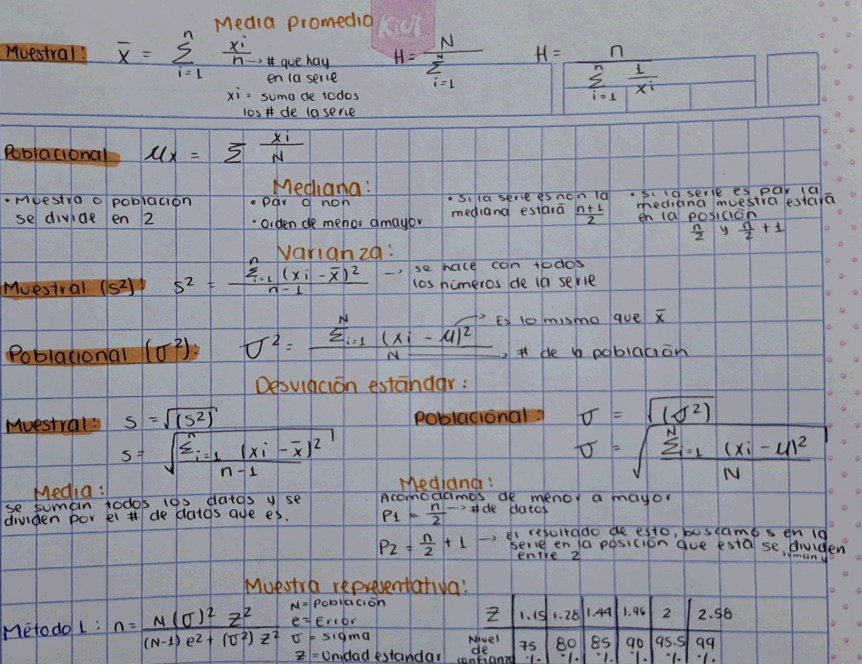 Media promedio
Kiut
Muestral: x̄ = Σ i=1 n xi/n → # que hay en la serie
xi = suma de todos los # de la serie
H = N / Σ i=1 N
H = n / Σ i=1 n 1/xi
Poblacional μx = Σ xi/N
Mediana:
• Muestra o población
se divide en 2
• Par o non
• Orden de menor a mayor
• Si la serie es non la
mediana estará n+1/2
• Si la serie es par la
mediana muestra estará
en la posición
n/2 y n/2 + 1
Varianza:
Muestral (s²): s² = Σ i=1 n (xi - x̄)² / n-1 → se hace con todos
los números de la serie
Poblacional (σ²): σ² = Σ i=1 N (xi - μ)² / N
Es lo mismo que x̄
# de la población
Desviación estándar:
Muestral: s = √(s²)
s = √ Σ i=1 n (xi - x̄)² / n-1
Poblacional: σ = √(σ²)
σ = √ Σ i=1 N (xi - μ)² / N
Media:
se suman todos los datos y se
dividen por el # de datos que es.
Mediana:
Acomodamos de menor a mayor
P1 = n/2 → # de datos
P2 = n/2 + 1 → el resultado de esto, buscamos en la
serie en la posición que esta se dividen
entre 2
Muestra representativa:
Método 1: n = N (σ)² Z² / (N-1) e² + (σ²) Z²
N = Población
e = Error
σ = sigma
Z = Unidad estandar
Z 1.15 1.28 1.44 1.96 2 2.58
Nivel de confianza 75 %. 80 %. 85 %. 90 %. 95.5 %. 99 %.